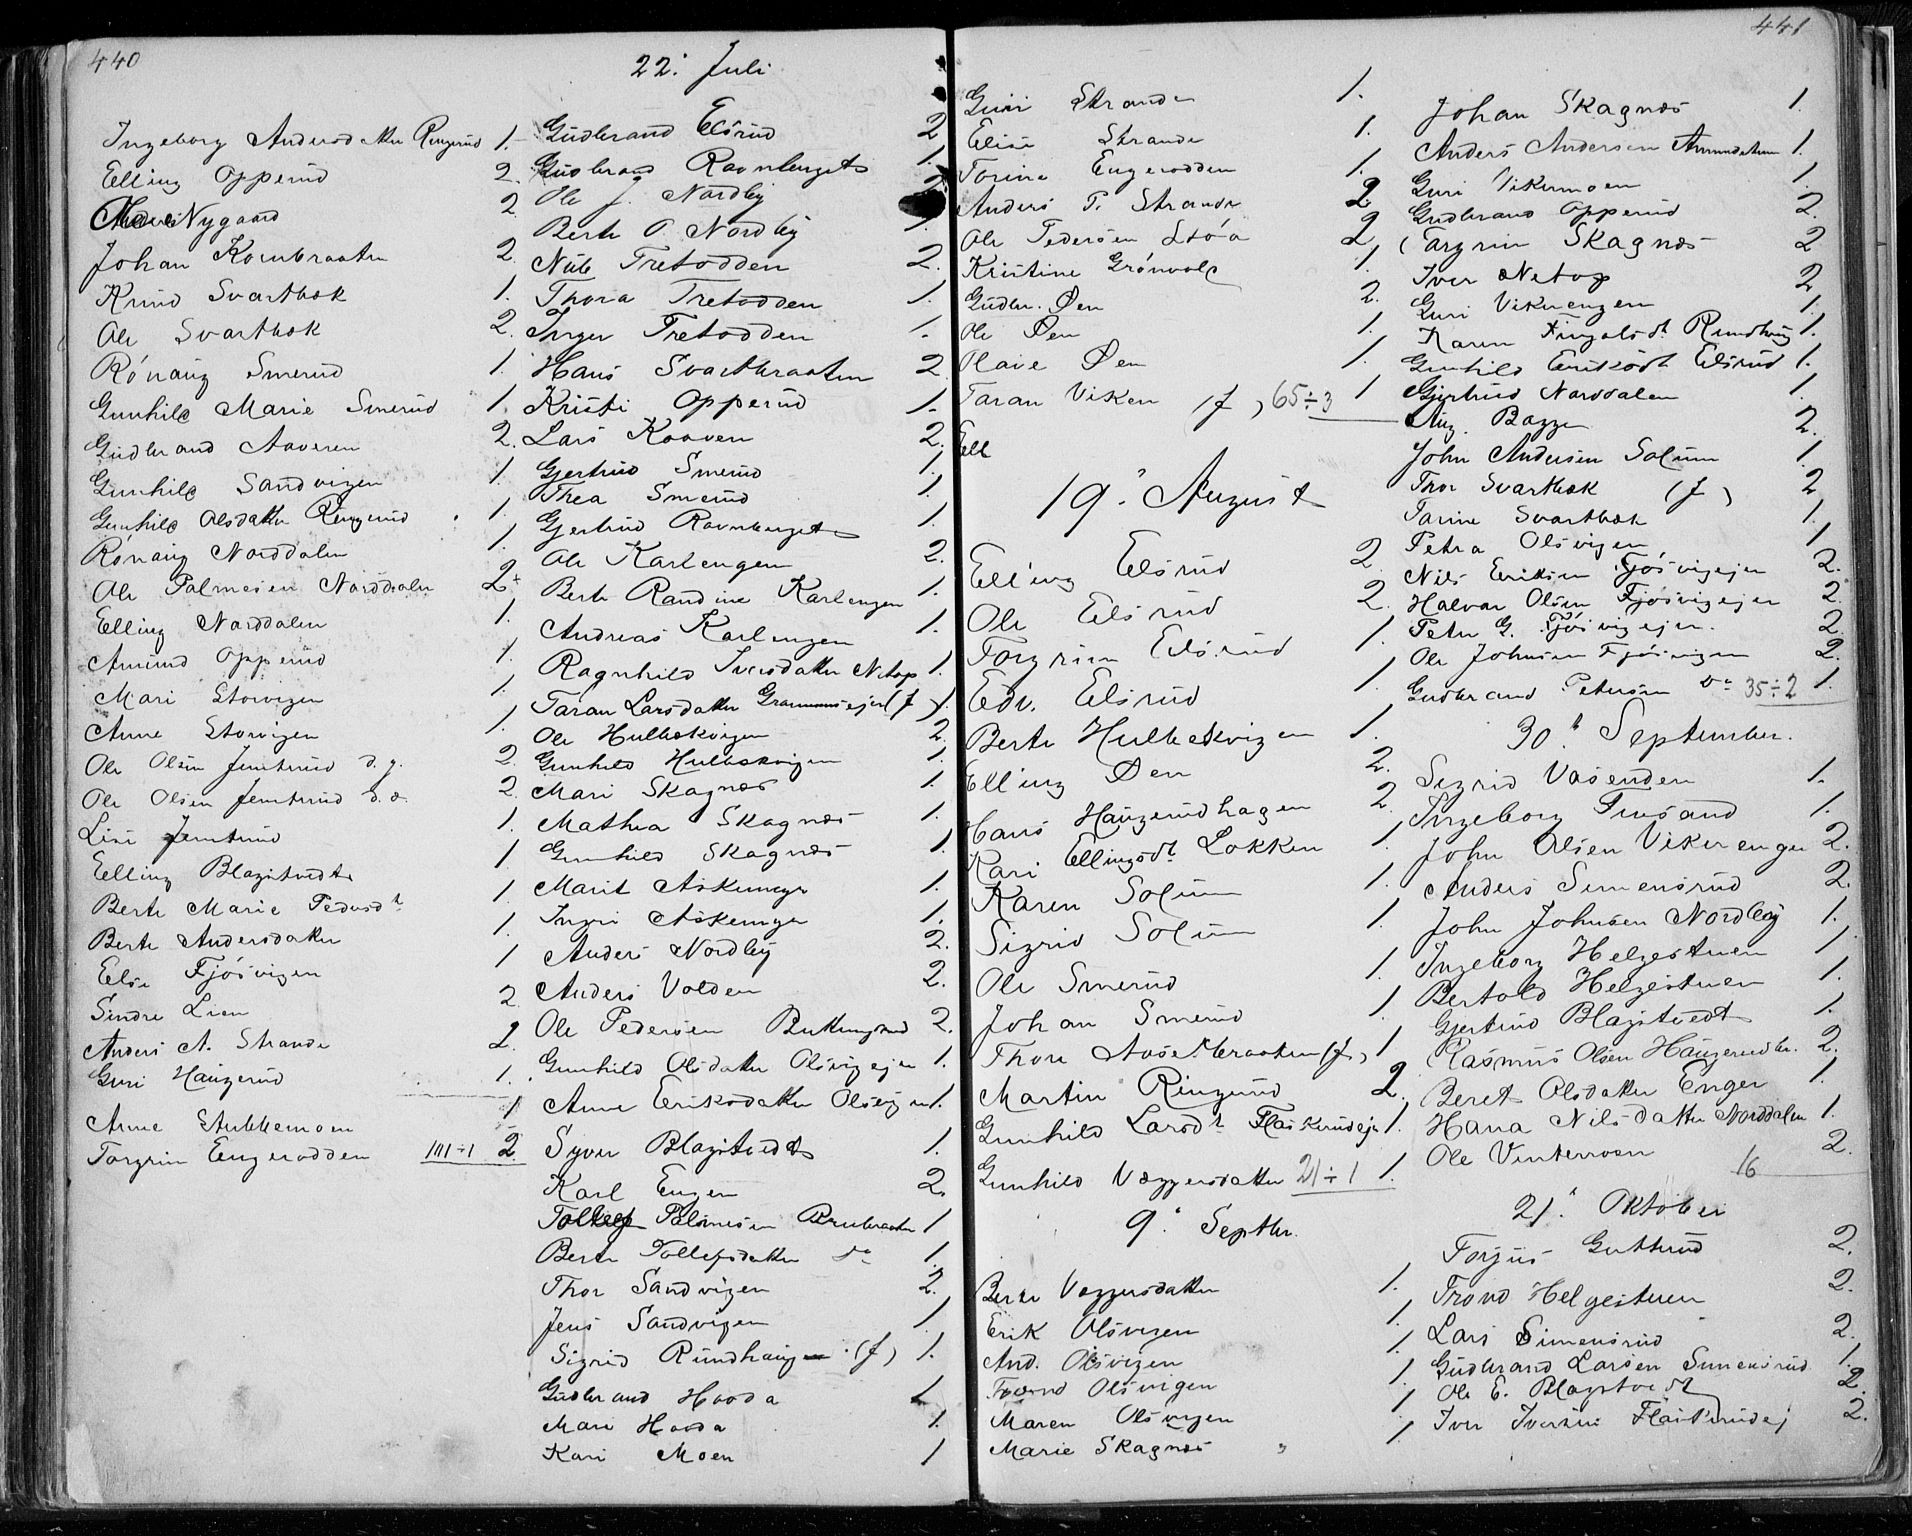 440
22. Juli
Ingeborg Andersdatter Ringerud 1.
Elling Opperud 2.
Nygaard 2
Johan Kornbraaten 2.
Knud Svartbæk 1.
Ole Svartbæk 2.
Rónaug Smerud 1.
Gunhild Marie Smerud 1.
Gudbrand Aaveren 2.
Gunhild Sandvigen 1.
Gunhild Olsdatter Ringerud 1.
Rónaug Norddalen 1.
Ole Palmesen Norddalen 2.
Elling Norddalen 1.
Amund Opperud 1.
Mari Storvigen 1.
Anne Storvigen 1.
Ole Olsen Jemterud d. y. 2.
Ole Olsen Jemterud d. æ. 2.
Lisi Jemterud 1.
Elling Blagstvedt 1
Berte Marie Pedersdt 1
Berte Andersdatter 1
Else Fjósvigen 1
Sindre Lien 2
Anders A. Strande 2.
Guri Haugerud 1.
Anne Stubbemoen 1
Torgrim Engerodden 101÷1 2
Gudbrand Elsrud 2
Gudbrand Ravnberget 1.
Ole J. Nordby
Berte O. Nordby 1.
Nub Tretodden 2.
Thora Tretodden 1.
Inger Tretodden 1.
Hans Svartbraaten 2
Kristi Opperud 1.
Lars Kaaven 2.
Gjertrud Smerud 1.
Thea Smerud 1.
Gjertrud Ravnberget 1.
Ole Karlengen 2.
Berte Randine Karlengen 1.
Andreas Karlengen 1.
Ragnhild Iversdatter Netop 1.
Taran Larsdatter (f) 1.
Ole Hulbækvigen 2.
Gunhild Hulbækvigen 1.
Mari Skagnæs 1.
Mathea Skagnæs 1.
Gunhild Skagnæs 1.
Marit Askemyr 1.
Ingri Askemyr 1.
Anders Nordby 2.
Anders Volden 2.
Ole Pedersen 2.
Gunhild Olsdatter Olsvigejer 1.
Anne Eriksdatter Olsvigen 1.
Syver Blagstvedt 1.
Karl Engen 2.
Tollef Palmesen 1
Berte Tollefsdatter do 1.
Thor Sandvigen 2.
Jens Sandvigen 1
Sigrid Rundhaug (f) 1.
Gudbrand Hovda 1
Mari Hovda 1.
Kari Moen 1
441
Guri Strande 1.
Elise Strande 1.
Torine Engerodden 1.
Anders P. Strande 2
Ole Pedersen Stóa 2
Kristine Grónvold 1.
Gudbr. Øen 2.
Ole Øen 1.
Olave Øen 1.
Taran Viken (f) 65÷3 1
Ell
19. August
Elling Elsrud 2.
Ole Elsrud 2.
Torgrim Elsrud 1.
Edv. Elsrud 1
Berte Hulbekvigen 1.
Elling Øen 2.
Hans Haugerudhagen 2.
Kari Ellingsdt Lokken 1.
Karen Solum 1.
Sigrid Solum 1.
Ole Smerud 1.
Johan Smerud 1
Thore (f) 1
Martin Ringerud 2.
Gunhild Larsdt Flaskerudejr 1.
Gunhild Væggersdatter 21÷1 1.
9. Septbr.
Berte Væggersdatter 1.
Erik Olsvigen 1
And. Olsvigen 1
Trond Olsvigen 1
Maren Olsvigen 1
Marie Skagnæs 1.
Johan Skagnæs 1.
Anders Andersen 1.
Guri Vikermoen 1.
Gudbrand Opperud 2.
Torgrim Skagnæs 2
Iver Netop 2
Guri Vikerengen 1.
Karen Rundhaug 1.
Gunhild Eriksdt Elsrud 1.
Gjertrud Norddalen 1.
Aug. Bagge 2.
John Andersen Solum 1.
Thor Svartbæk (f) 2
Torine Svartbæk 1.
Petra Olsvigen 1
Nils Eriksen Fjósvigejer 2.
Halvor Olsen Fjósvigejer 2.
Peter G. Fjósvigejer. 2.
Ole Johnsen Fjósvigen 2.
Gudbrand Petersen do 35÷2 1.
30. September.
Sigrid Vasenden 1.
Ingeborg 1.
John Olsen Vikerengen 2.
Anders Simensrud 2.
John Johnsen Nordby 1.
Ingeborg Helgestuen 1
Bertold Helgestuen 1.
Gjertrud Blagstvedt 1.
Rasmus Olsen Haugerudbr. 2.
Beret Olsdatter Enger 1.
Hana Nilsdatter Norddalen 1.
Ole Vintermoen 2.
16
21. Oktober
Torjus Gutterud 2.
Trond Helgestuen 2.
Lars Simensrud 2.
Gudbrand Larsen Simensrud 1.
Ole E. Blagstvedt 2.
Iver Iversen Flaskerudej 2.